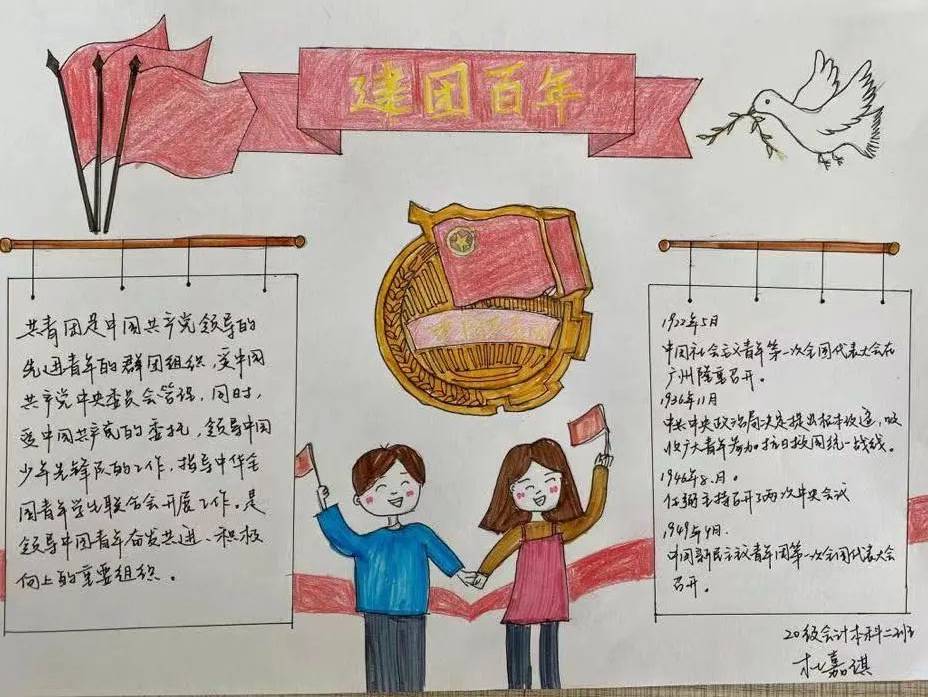 建团百年
共青团是中国共产党领导的
先进青年的群团组织,受中国
共产党中央委员会管理,同时,
受中国共产党的委托,领导中国
少年先锋队的工作,指导中华全
国青年学生联合会开展工作。是
领导中国青年奋发共进、积极
向上的重要组织。
1922年5月
中国社会主义青年第一次全国代表大会在
广州隆重召开。
1936年11月
中共中央政治局决定提出根本改造,吸
收广大青年参加抗日救国统一战线。
1946年8.月。
任弼主持召开了两次中央会议
1949年4月.
中国新民主主义青年团第一次全国代表大会
召开。
20级会计本科二班
杜嘉琪